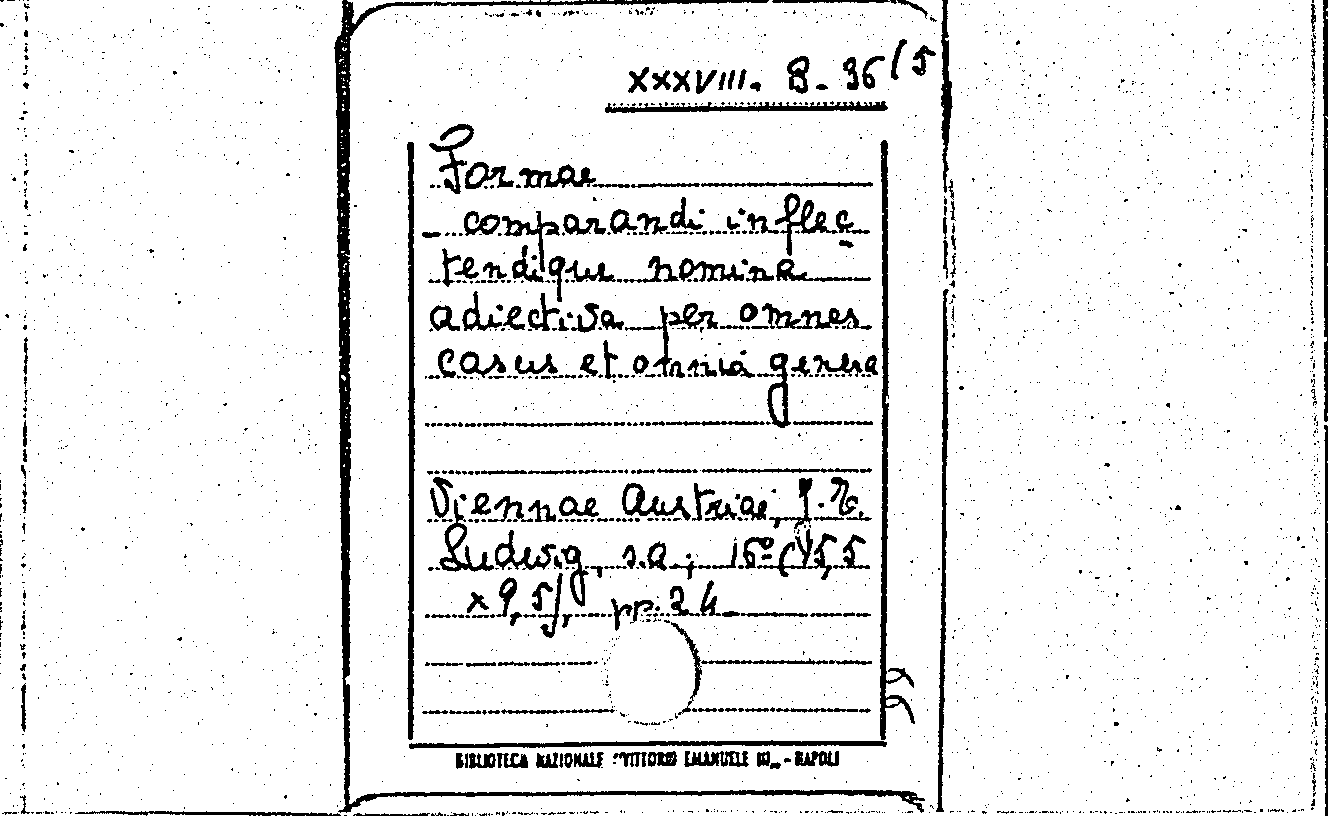 XXXVIII. B. 36/5
Formae
- comparandi inflec
tendique nomina
adiectiva per omnes
casus et omnia genera
Viennae Austriae,
Ludwig, s.a.; 16º (15,5
x 9,5), pp. 24
BIBLIOTECA NAZIONALE "VITTORIO EMANUELE III„ - NAPOLI